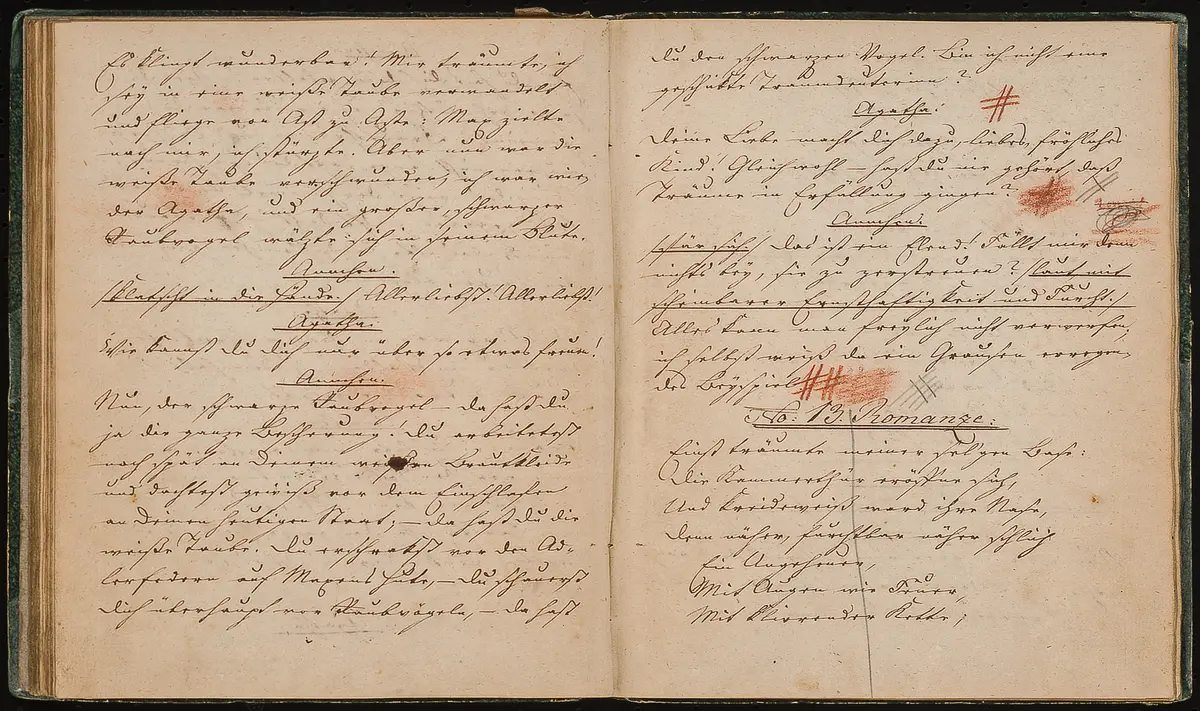 Es klingt wunderbar! Mir träumte, ich
sey in eine weiße Taube verwandelt
und fliege von Ast zu Aste: Max zielte
nach mir, ich stürzte. Aber nun war die
weiße Taube verschwunden, ich war wie-
der Agathe, und ein großer, schwarzer
Raubvogel wälzte sich in seinem Blute.
Annchen.
/klatscht in die Hände./ Allerliebst! Allerliebst!
Agatha.
Wie kannst du dich nur über so etwas freun!
Annchen.
Nun, der schwarze Raubvogel – da hast du
ja die ganze Bescherung! Du arbeitetest
noch spät an Deinem weißen Brautkleide
und dachtest gewiß vor dem Einschlafen
an Deinen heutigen Staat; – da hast du die
weiße Taube. Du erschrakst vor den Ad-
lerfedern auf Maxens Hute, – Du schauerst
Dich überhaupt vor Raubvögeln, – da hast
du den schwarzen Vogel. Bin ich nicht eine
geschickte Traumdeuterin?
Agatha:
Deine Liebe macht dich dazu, liebes, fröhliches
Kind! Gleichwohl – hast du nie gehört, daß
Träume in Erfüllung gingen?
Annchen.
/für sich./ Das ist ein Elend! Fällt mir denn
nichts bey, sie zu zerstreuen? /laut mit
scheinbarer Ernsthaftigkeit und Furcht./
Alles kann man freylich nicht verwerfen,
ich selbst weiß da ein Grausen erregen-
des Beyspiel.
No: 13. Romanze:
Einst träumte meiner sel'gen Base:
Die Kammerthür eröffne sich,
Und kreideweiß ward ihre Nase,
Denn näher, furchtbar näher schlich
Ein Ungeheuer,
Mit Augen wie Feuer,
Mit klirrender Kette;